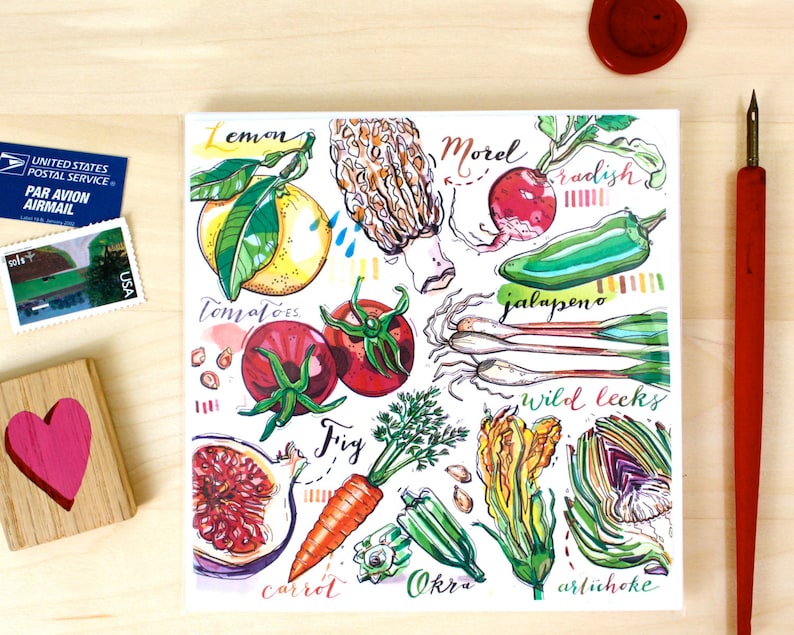 UNITED STATES
POSTAL SERVICE®
PAR AVION
AIRMAIL
Label 19-B, January 2002
USA
Lemon
Morel
radish
jalapeno
Tomatoes.
wild leeks
Fig
carrot
Okra
artichoke